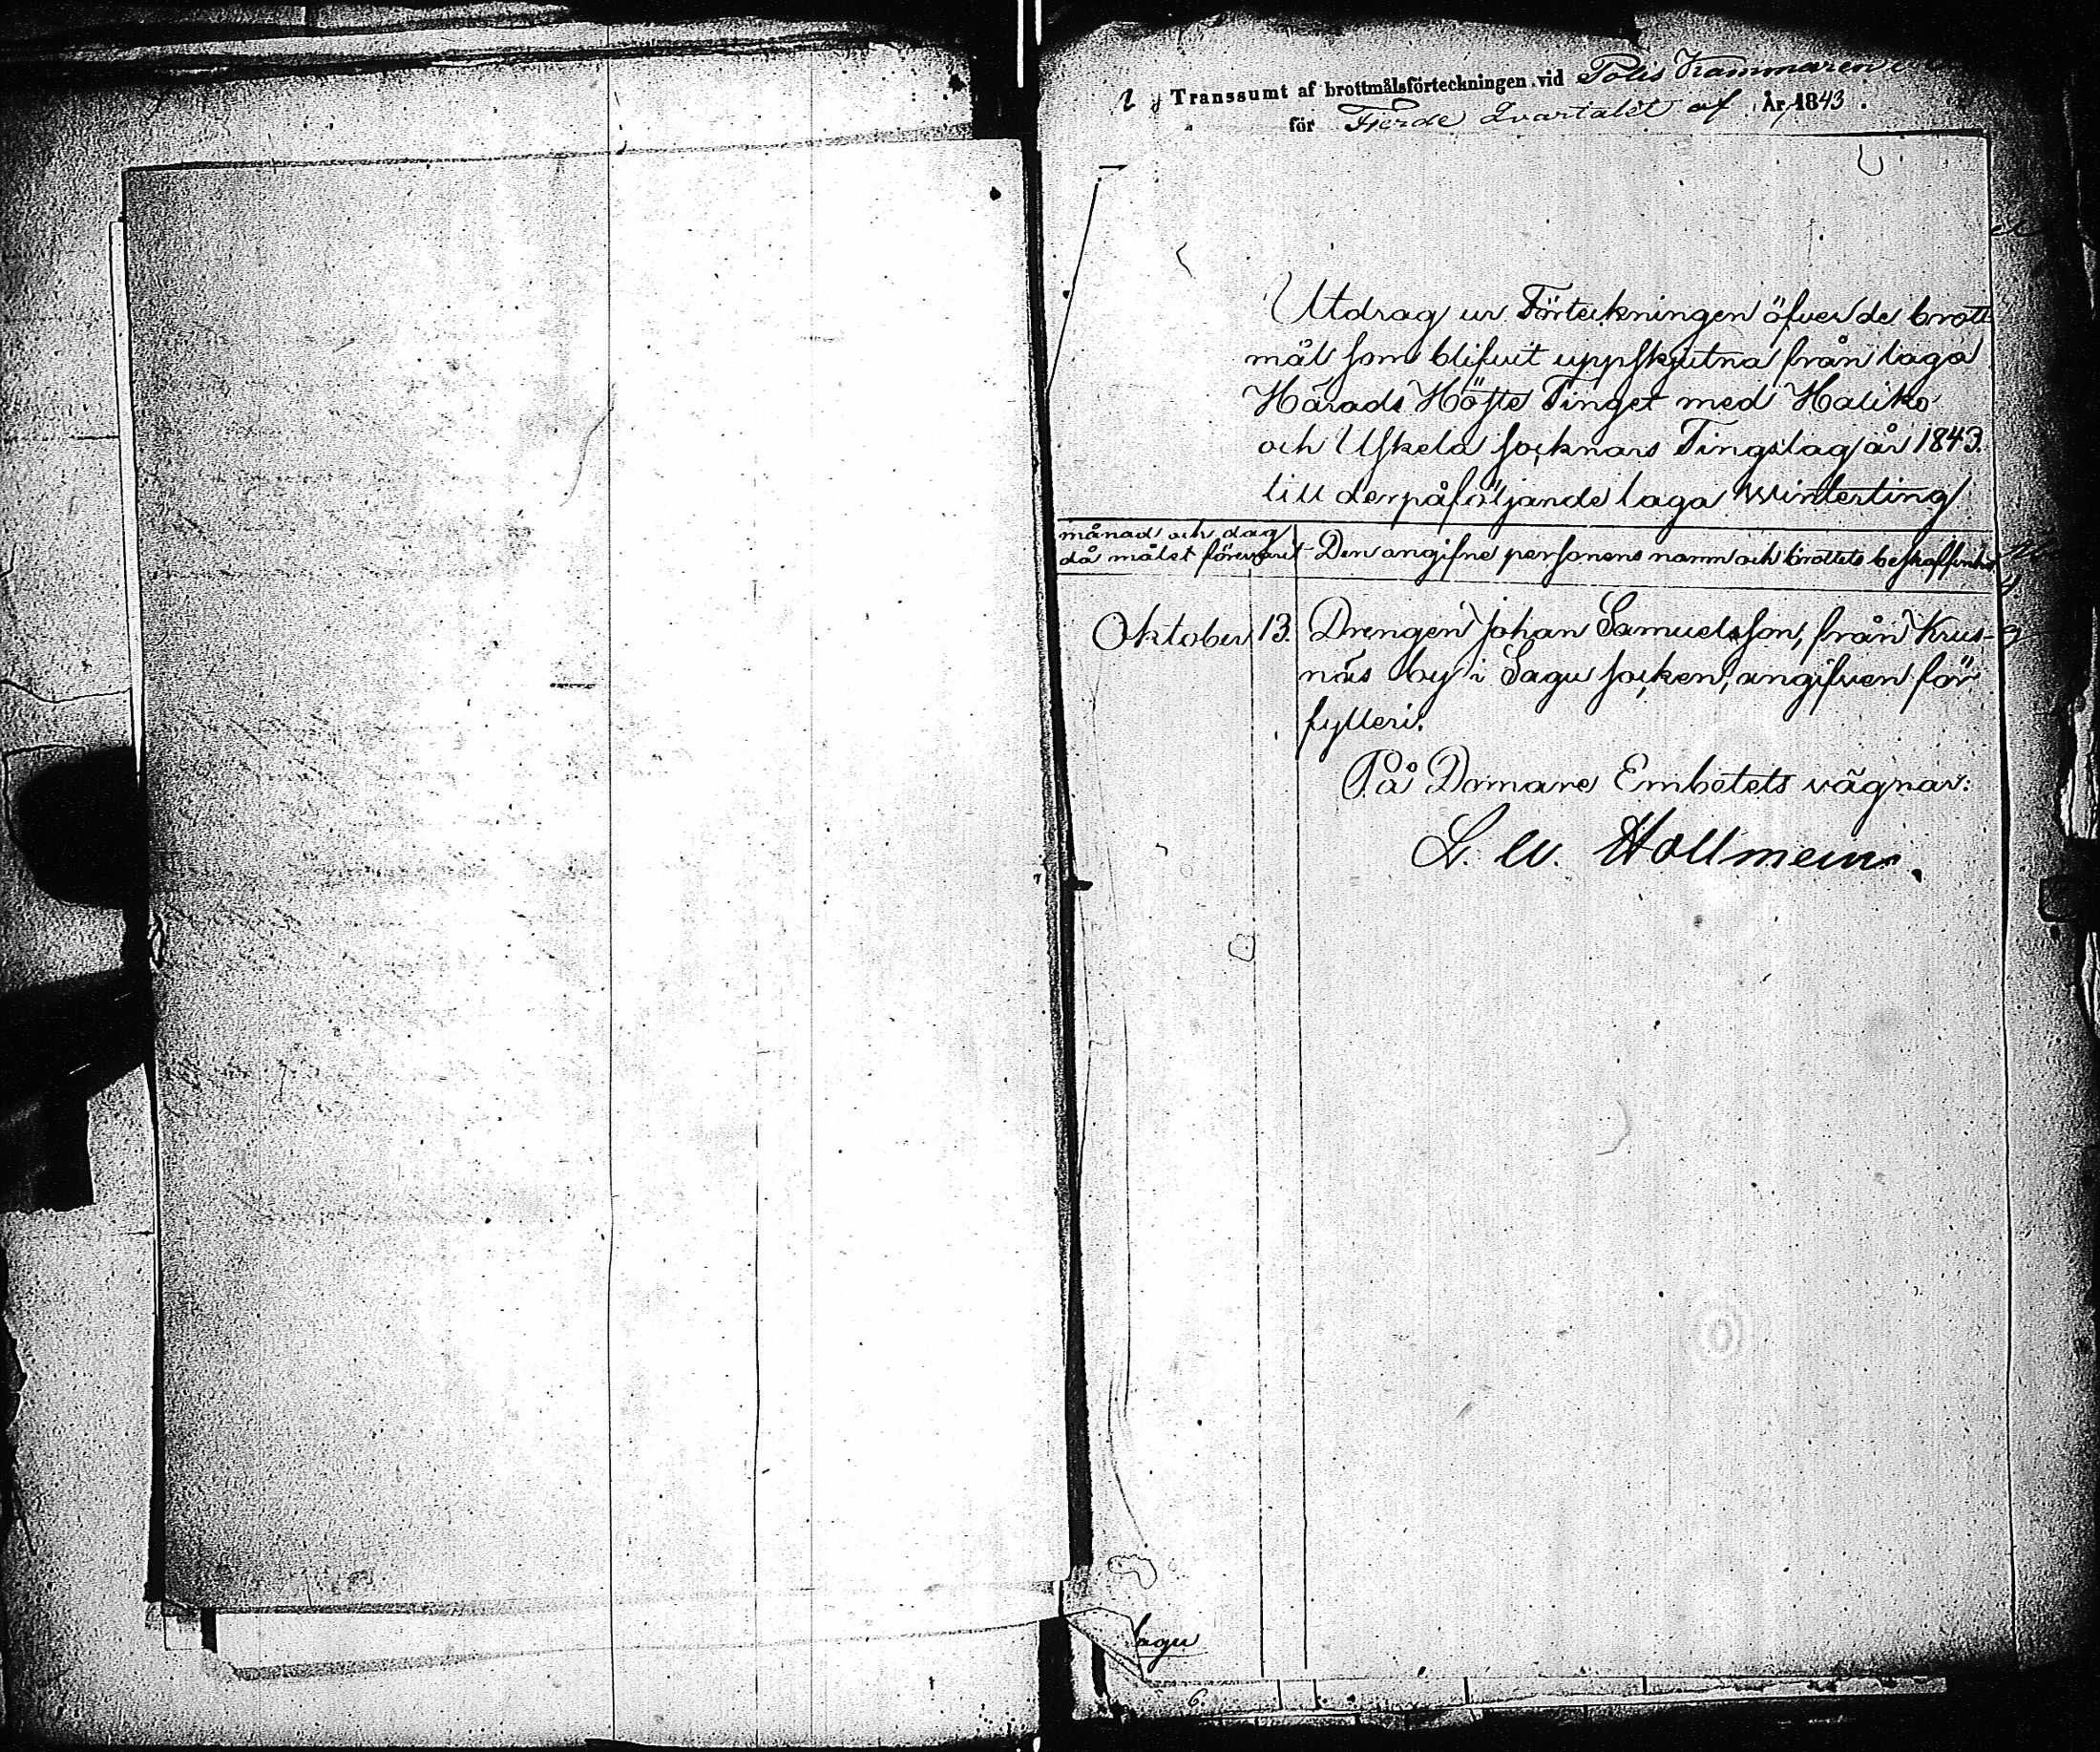 Transsumt af brottmålsförteckningen vid Polis Kammaren
för Fjerde Qvartalet af År 1843.
Utdrag ur Förteckningen öfver de brott-
mål som blifvit uppskjutna från laga
Härads Höste Tinget med Haliko
och Uskela socknars Tingslag år 1843.
till derpåföljande laga Winterting
månad och dag
då målet förevarit
Den angifne personens namn och brottets beskaffenhet
Oktober 13. Drengen Johan Samuelsson, från Krus-
näs by i Sagu socken, angifven för
fylleri.
På Domare Embetets vägnar:
Sagu
6.